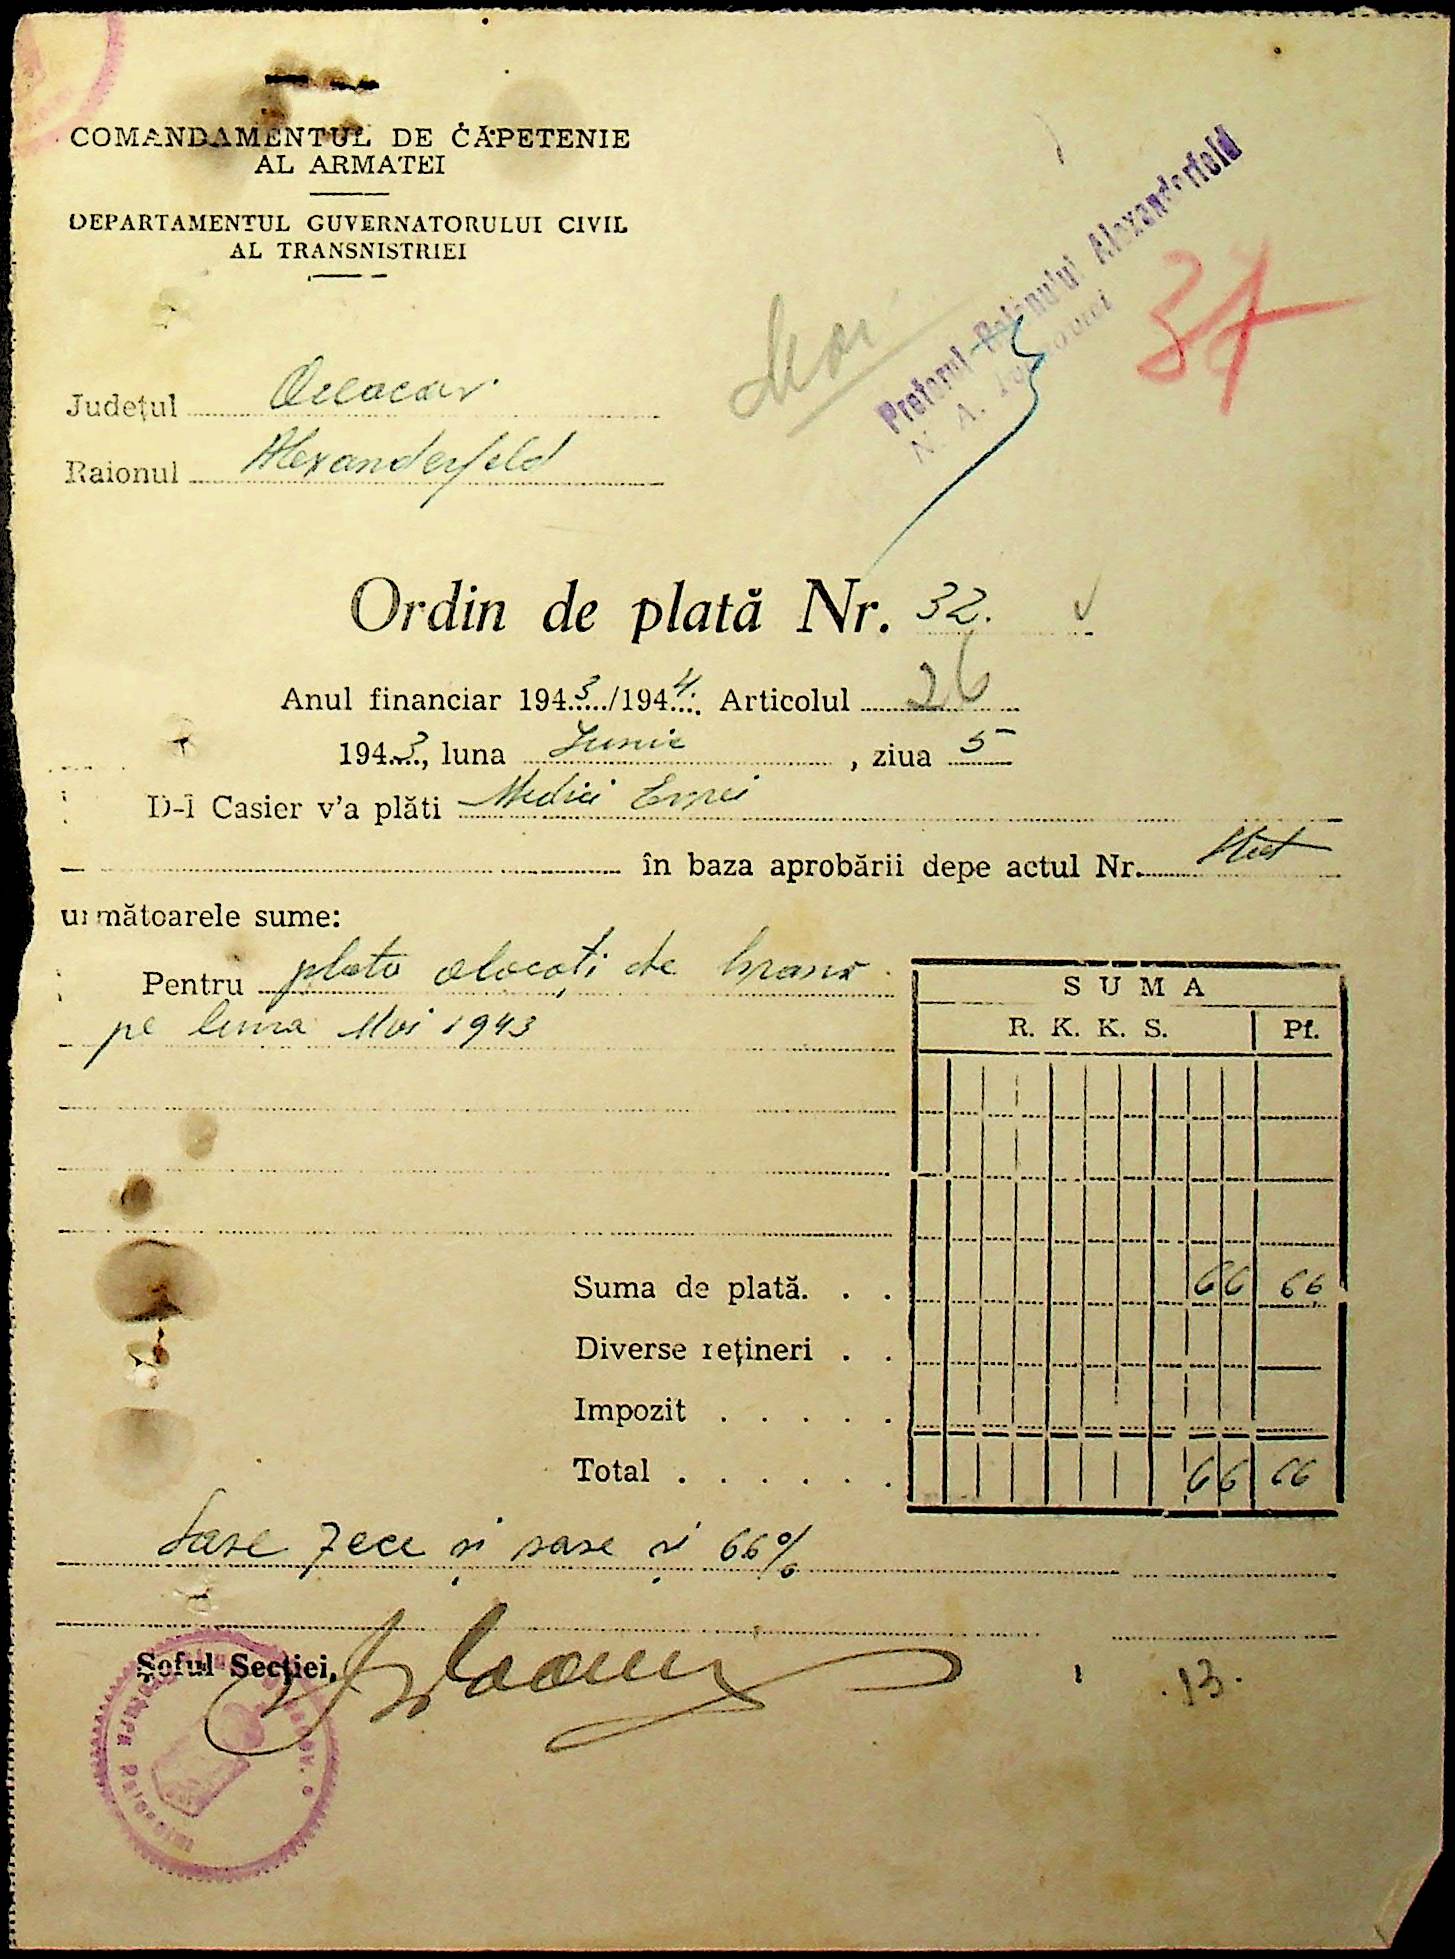 COMANDAMENTUL DE CĂPETENIE
AL ARMATEI
DEPARTAMENTUL GUVERNATORULUI CIVIL
AL TRANSNISTRIEI
Pretorul Raionului Alexanderfeld
N. A.
37
Mai
Județul
Raionul Alexanderfeld
Ordin de plată Nr. 32.
Anul financiar 1943/1944. Articolul 26
1943, luna Iunie, ziua 5
D-l Casier v'a plăti Medici Evrei
în baza aprobării depe actul Nr. Stat
următoarele sume:
Pentru plata alocați de hrană
pe luna Mai 1943
SUMA
R. K. K. S. Pf.
Suma de plată. . . 66 66
Diverse rețineri . .
Impozit . . . . .
Total . . . . . . 66 66
Șase zece și șase și 66%
Șeful Secției,
.13.